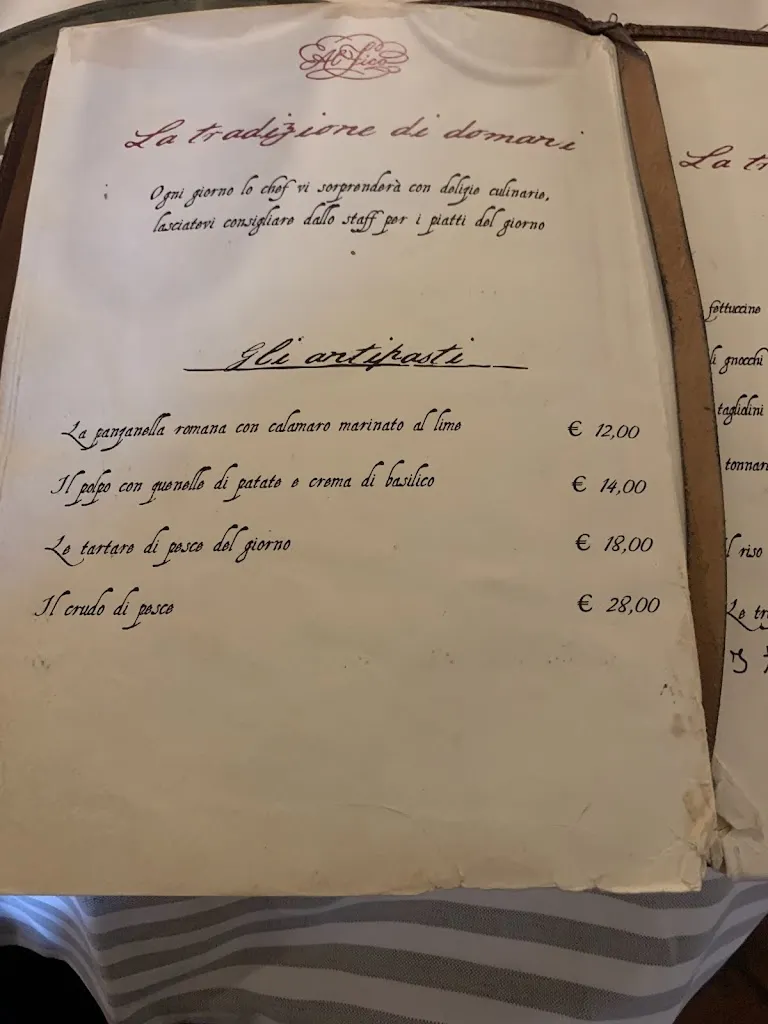 Al Fico
La tradizione di domani
Ogni giorno lo chef vi sorprenderà con delizie culinarie,
lasciatevi consigliare dallo staff per i piatti del giorno
Gli antipasti
La panzanella romana con calamaro marinato al lime € 12,00
Il polpo con quenelle di patate e crema di basilico € 14,00
Le tartare di pesce del giorno € 18,00
Il crudo di pesce € 28,00
La tr
fettuccine
li gnocchi
tagliolini
tonnar
l riso
Le tr